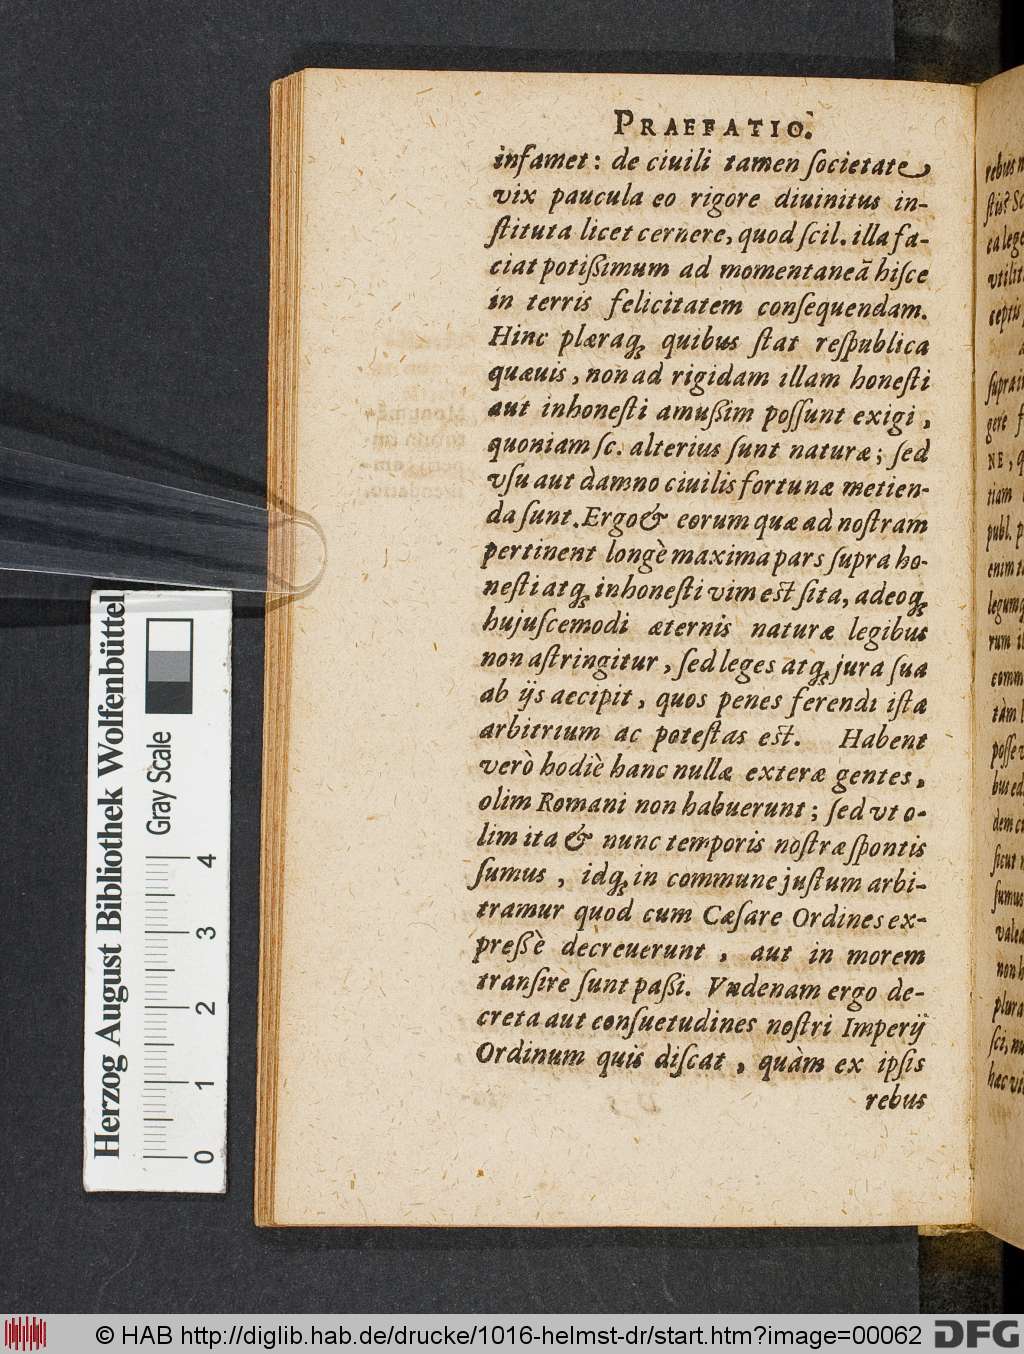 PRAEFATIO.
infamet: de ciuili tamen ſocietate
vix paucula eo rigore diuinitus in-
ſtituta licet cernere, quod ſcil. illa fa-
ciat potißimum ad momentaneã hiſce
in terris felicitatem conſequendam.
Hinc pleraqꝫ quibus ſtat reſpublica
quæuis, non ad rigidam illam honeſti
aut inhoneſti amußim poſſunt exigi,
quoniam ſc. alterius ſunt naturæ; ſed
vſu aut damno ciuilis fortunæ metien-
da ſunt. Ergo & eorum quæ ad noſtram
pertinent longè maxima pars ſupra ho-
neſti atqꝫ inhoneſti vim eſt ſita, adeoqꝫ
hujuſcemodi æternis naturæ legibus
non aſtringitur, ſed leges atqꝫ jura ſua
ab ijs aecipit, quos penes ferendi iſta
arbitrium ac poteſtas eſt. Habent
verò hodiè hanc nullæ exteræ gentes,
olim Romani non habuerunt; ſed vt o-
lim ita & nunc temporis noſtræ ſpontis
ſumus, idqꝫ in commune juſtum arbi-
tramur quod cum Cæſare Ordines ex-
preßè decreuerunt, aut in morem
tranſire ſunt paßi. Vndenam ergo de-
creta aut conſuetudines noſtri Imperij
Ordinum quis diſcat, quàm ex ipſis
rebus
Herzog August Bibliothek Wolfenbüttel
Gray Scale
0 1 2 3 4
© HAB http://diglib.hab.de/drucke/1016-helmst-dr/start.htm?image=00062
DFG